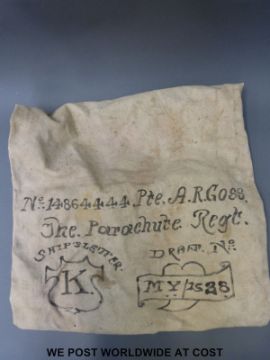 No. 14864444. Pte. A.R. Goss.
The Parachute Regt.
SHIPS LETTER.
DRAFT. No.
K
MY/1528
WE POST WORLDWIDE AT COST